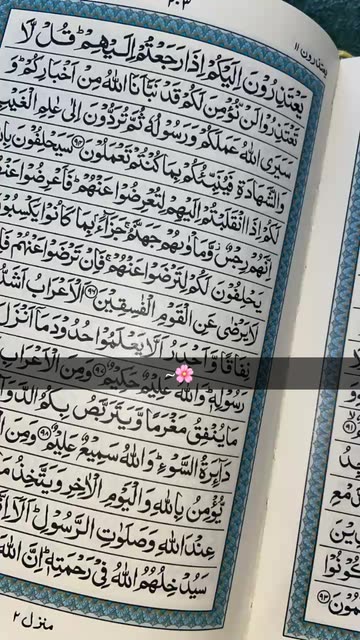 ۲۰۳
یعتذرون ۱۱
يَعْتَذِرُوْنَ اِلَيْكُمْ اِذَا رَجَعْتُمْ اِلَيْهِمْ ؕ قُلْ لَّا
تَعْتَذِرُوْا لَنْ نُّؤْمِنَ لَكُمْ قَدْ نَبَّاَنَا اللّٰهُ مِنْ اَخْبَارِكُمْ ؕ وَ
سَيَرَى اللّٰهُ عَمَلَكُمْ وَرَسُوْلُهٗ ثُمَّ تُرَدُّوْنَ اِلٰى عٰلِمِ الْغَيْبِ
وَالشَّهَادَةِ فَيُنَبِّئُكُمْ بِمَا كُنْتُمْ تَعْمَلُوْنَ ۹۴ سَيَحْلِفُوْنَ بِاللّٰهِ
لَكُمْ اِذَا انْقَلَبْتُمْ اِلَيْهِمْ لِتُعْرِضُوْا عَنْهُمْ ؕ فَاَعْرِضُوْا عَنْهُمْ
اِنَّهُمْ رِجْسٌ وَّمَاْوٰىهُمْ جَهَنَّمُ ۚ جَزَآءًۢ بِمَا كَانُوْا يَكْسِبُوْنَ
يَحْلِفُوْنَ لَكُمْ لِتَرْضَوْا عَنْهُمْ ۚ فَاِنْ تَرْضَوْا عَنْهُمْ
لَا يَرْضٰى عَنِ الْقَوْمِ الْفٰسِقِيْنَ ۹۶ اَلْاَعْرَابُ اَشَدُّ
نِفَاقًا وَّاَجْدَرُ اَلَّا يَعْلَمُوْا حُدُوْدَ مَآ اَنْزَلَ
~🌸
رَسُوْلِهٖ ؕ وَاللّٰهُ عَلِيْمٌ حَكِيْمٌ ۹۷ وَمِنَ الْاَعْرَابِ
مَا يُنْفِقُ مَغْرَمًا وَّيَتَرَبَّصُ بِكُمُ الدَّوَآئِرَ
دَآئِرَةُ السَّوْءِ ؕ وَاللّٰهُ سَمِيْعٌ عَلِيْمٌ ۹۸ وَمِنَ
يُّؤْمِنُ بِاللّٰهِ وَالْيَوْمِ الْاٰخِرِ وَيَتَّخِذُ
عِنْدَ اللّٰهِ وَصَلَوٰتِ الرَّسُوْلِ ؕ اَلَآ
سَيُدْخِلُهُمُ اللّٰهُ فِيْ رَحْمَتِهٖ ؕ اِنَّ اللّٰهَ
منزل ۲